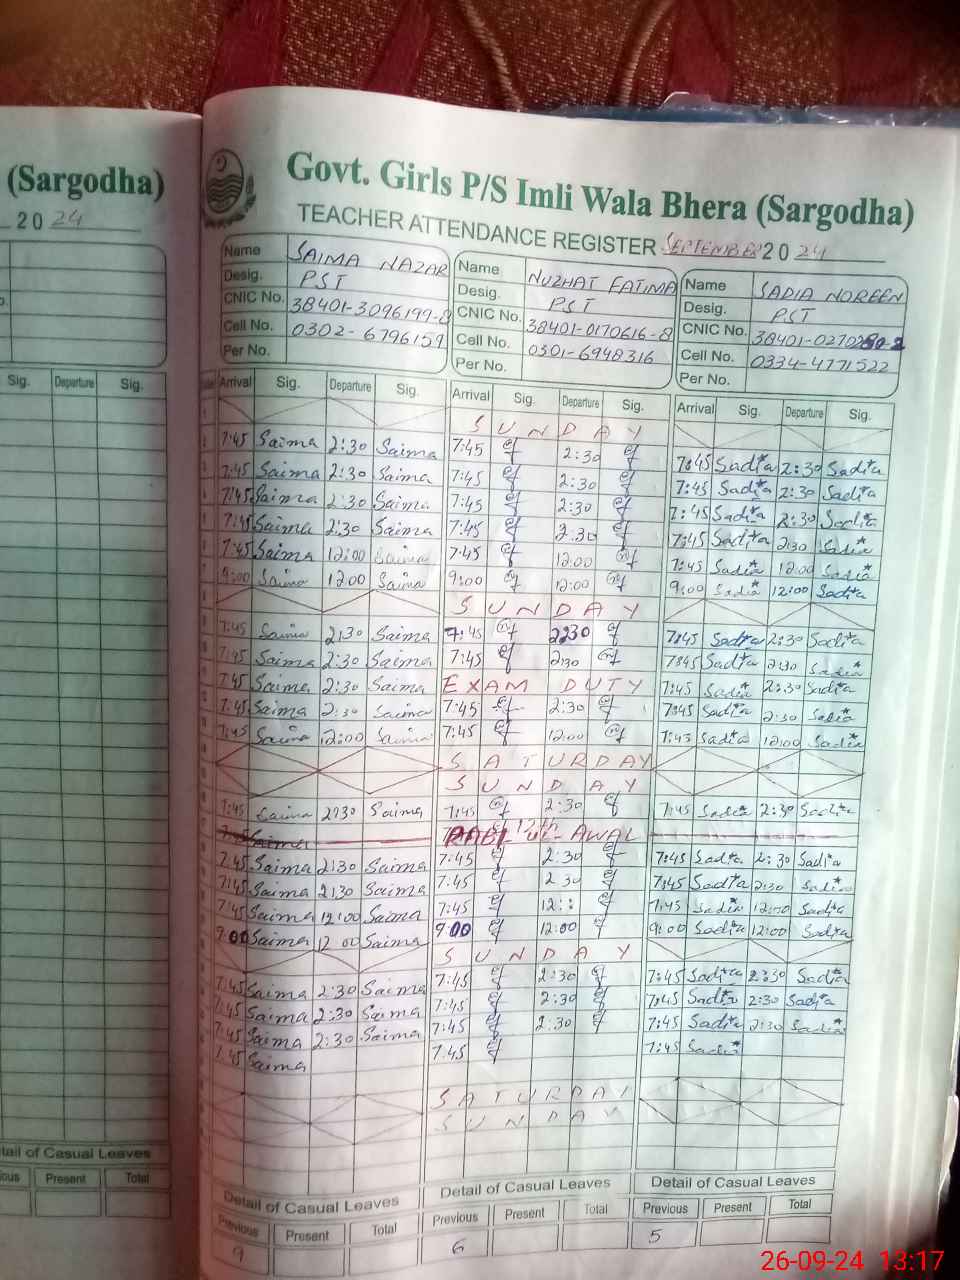 (Sargodha)
2024
Sig. Departure Sig.
Detail of Casual Leaves
Present Total
Govt. Girls P/S Imli Wala Bhera (Sargodha)
TEACHER ATTENDANCE REGISTER SEPTEMBER 2024
Name SAIMA NAZAR Name NUZHAT FATIMA Name SADIA NOREEN
Desig. PST Desig. PST Desig. PST
CNIC No. 38401-3096199-8 CNIC No. 38401-0170616-8 CNIC No.
Cell No. 0302-6796159 Cell No. 0301-6948316 Cell No. 0334-4771522
Per No. Per No. Per No.
Arrival Sig. Departure Sig. Arrival Sig. Departure Sig. Arrival Sig. Departure Sig.
SUNDAY
7:45 Saima 2:30 Saima 7:45 2:30 7:45 Sadia 2:30 Sadia
7:45 Saima 2:30 Saima 7:45 2:30 7:45 Sadia 2:30 Sadia
7:45 Saima 2:30 Saima 7:45 2:30 7:45 Sadia 2:30 Sadia
7:45 Saima 2:30 Saima 7:45 2:30 7:45 Sadia 2:30 Sadia
7:45 Saima 12:00 Saima 7:45 12:00 7:45 Sadia 12:00 Sadia
9:00 Saima 12:00 Saima 9:00 12:00 9:00 Sadia 12:00 Sadia
SUNDAY
7:45 Saima 2:30 Saima 7:45 2:30 7:45 Sadia 2:30 Sadia
7:45 Saima 2:30 Saima 7:45 2:30 7:45 Sadia 2:30 Sadia
7:45 Saima 2:30 Saima EXAM DUTY 7:45 Sadia 2:30 Sadia
7:45 Saima 2:30 Saima 7:45 2:30 7:45 Sadia 2:30 Sadia
7:45 Saima 12:00 Saima 7:45 12:00 7:45 Sadia 12:00 Sadia
SATURDAY
SUNDAY
7:45 Saima 2:30 Saima 7:45 2:30 7:45 Sadia 2:30 Sadia
12th RABI-UL-AWAL
7:45 Saima 2:30 Saima 7:45 2:30 7:45 Sadia 2:30 Sadia
7:45 Saima 2:30 Saima 7:45 2:30 7:45 Sadia 2:30 Sadia
7:45 Saima 12:00 Saima 7:45 12:: 7:45 Sadia 12:00 Sadia
9:00 Saima 12:00 Saima 9:00 12:00 9:00 Sadia 12:00 Sadia
SUNDAY
7:45 Saima 2:30 Saima 7:45 2:30 7:45 Sadia 2:30 Sadia
7:45 Saima 2:30 Saima 7:45 2:30 7:45 Sadia 2:30 Sadia
7:45 Saima 2:30 Saima 7:45 2:30 7:45 Sadia 2:30 Sadia
7:45 Saima 7:45 7:45 Sadia
SATURDAY
SUNDAY
Detail of Casual Leaves Detail of Casual Leaves Detail of Casual Leaves
Previous Present Total Previous Present Total Previous Present Total
9 6 5
26-09-24 13:17